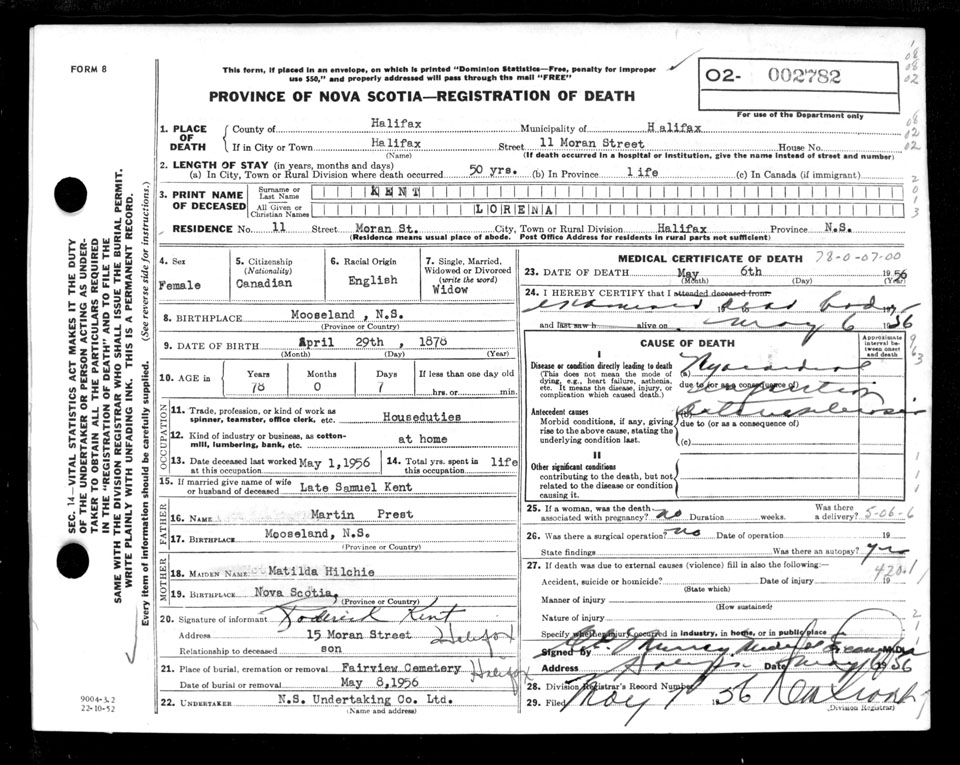 FORM 8
This form, if placed in an envelope, on which is printed "Dominion Statistics—Free, penalty for improper
use $50," and properly addressed will pass through the mail "FREE"
O2- 002782
For use of the Department only
PROVINCE OF NOVA SCOTIA—REGISTRATION OF DEATH
1. PLACE OF DEATH
County of Halifax Municipality of Halifax
If in City or Town Halifax Street 11 Moran Street House No.
(Name) (If death occurred in a hospital or institution, give the name instead of street and number)
2. LENGTH OF STAY (in years, months and days)
(a) In City, Town or Rural Division where death occurred 50 yrs. (b) In Province life (c) In Canada (if immigrant)
3. PRINT NAME OF DECEASED
Surname or Last Name KENT
All Given or Christian Names LORENA
RESIDENCE No. 11 Street Moran St. City, Town or Rural Division Halifax Province N.S.
(Residence means usual place of abode. Post Office Address for residents in rural parts not sufficient)
4. Sex
Female
5. Citizenship
(Nationality)
Canadian
6. Racial Origin
English
7. Single, Married,
Widowed or Divorced
(write the word)
Widow
8. BIRTHPLACE Mooseland, N.S.
(Province or Country)
9. DATE OF BIRTH April 29th, 1878
(Month) (Day) (Year)
10. AGE in Years Months Days If less than one day old
78 0 7 hrs. or min.
OCCUPATION
11. Trade, profession, or kind of work as
spinner, teamster, office clerk, etc. Houseduties
12. Kind of industry or business, as cotton-
mill, lumbering, bank, etc. at home
13. Date deceased last worked
at this occupation May 1, 1956
14. Total yrs. spent in
this occupation life
15. If married give name of wife
or husband of deceased Late Samuel Kent
FATHER
16. NAME Martin Prest
17. BIRTHPLACE Mooseland, N.S.
(Province or Country)
MOTHER
18. MAIDEN NAME Matilda Hilchie
19. BIRTHPLACE Nova Scotia,
(Province or Country)
20. Signature of informant Roderick Kent
Address 15 Moran Street Halifax
Relationship to deceased son
21. Place of burial, cremation or removal Fairview Cemetery Halifax
Date of burial or removal May 8, 1956
22. UNDERTAKER N.S. Undertaking Co. Ltd.
(Name and address)
MEDICAL CERTIFICATE OF DEATH 78-0-07-00
23. DATE OF DEATH May 6th 1956
(Month) (Day) (Year)
24. I HEREBY CERTIFY that I attended deceased from
examined dead body
and last saw h alive on May 6 1956
CAUSE OF DEATH
Approximate interval between onset and death
I
Disease or condition directly leading to death
(This does not mean the mode of
dying, e.g., heart failure, asthenia,
etc. It means the disease, injury, or
complication which caused death.)
(a) Myocardial
infarction
due to (or as a consequence of)
Antecedent causes
Morbid conditions, if any, giving
rise to the above cause, stating the
underlying condition last.
(b)
due to (or as a consequence of)
(c)
II
Other significant conditions
contributing to the death, but not
related to the disease or condition
causing it.
25. If a woman, was the death
associated with pregnancy? no Duration weeks. Was there
a delivery? 5-06-6
26. Was there a surgical operation? no Date of operation 19
State findings Was there an autopsy? yes
27. If death was due to external causes (violence) fill in also the following: 420.1
Accident, suicide or homicide? Date of injury 19
(State which)
Manner of injury
(How sustained)
Nature of injury
Specify whether injury occurred in industry, in home, or in public place
Signed by Murray Medical Examiner M.D.
Address Halifax Date May 6 1956
28. Division Registrar's Record Number
29. Filed May 7 1956
(Division Registrar)
SEC. 14—VITAL STATISTICS ACT MAKES IT THE DUTY
OF THE UNDERTAKER OR PERSON ACTING AS UNDER-
TAKER TO OBTAIN ALL THE PARTICULARS REQUIRED
IN THE "REGISTRATION OF DEATH" AND TO FILE THE
SAME WITH THE DIVISION REGISTRAR WHO SHALL ISSUE THE BURIAL PERMIT.
WRITE PLAINLY WITH UNFADING INK. THIS IS A PERMANENT RECORD.
Every item of information should be carefully supplied. (See reverse side for instructions.)
9004-3.2
22-10-52